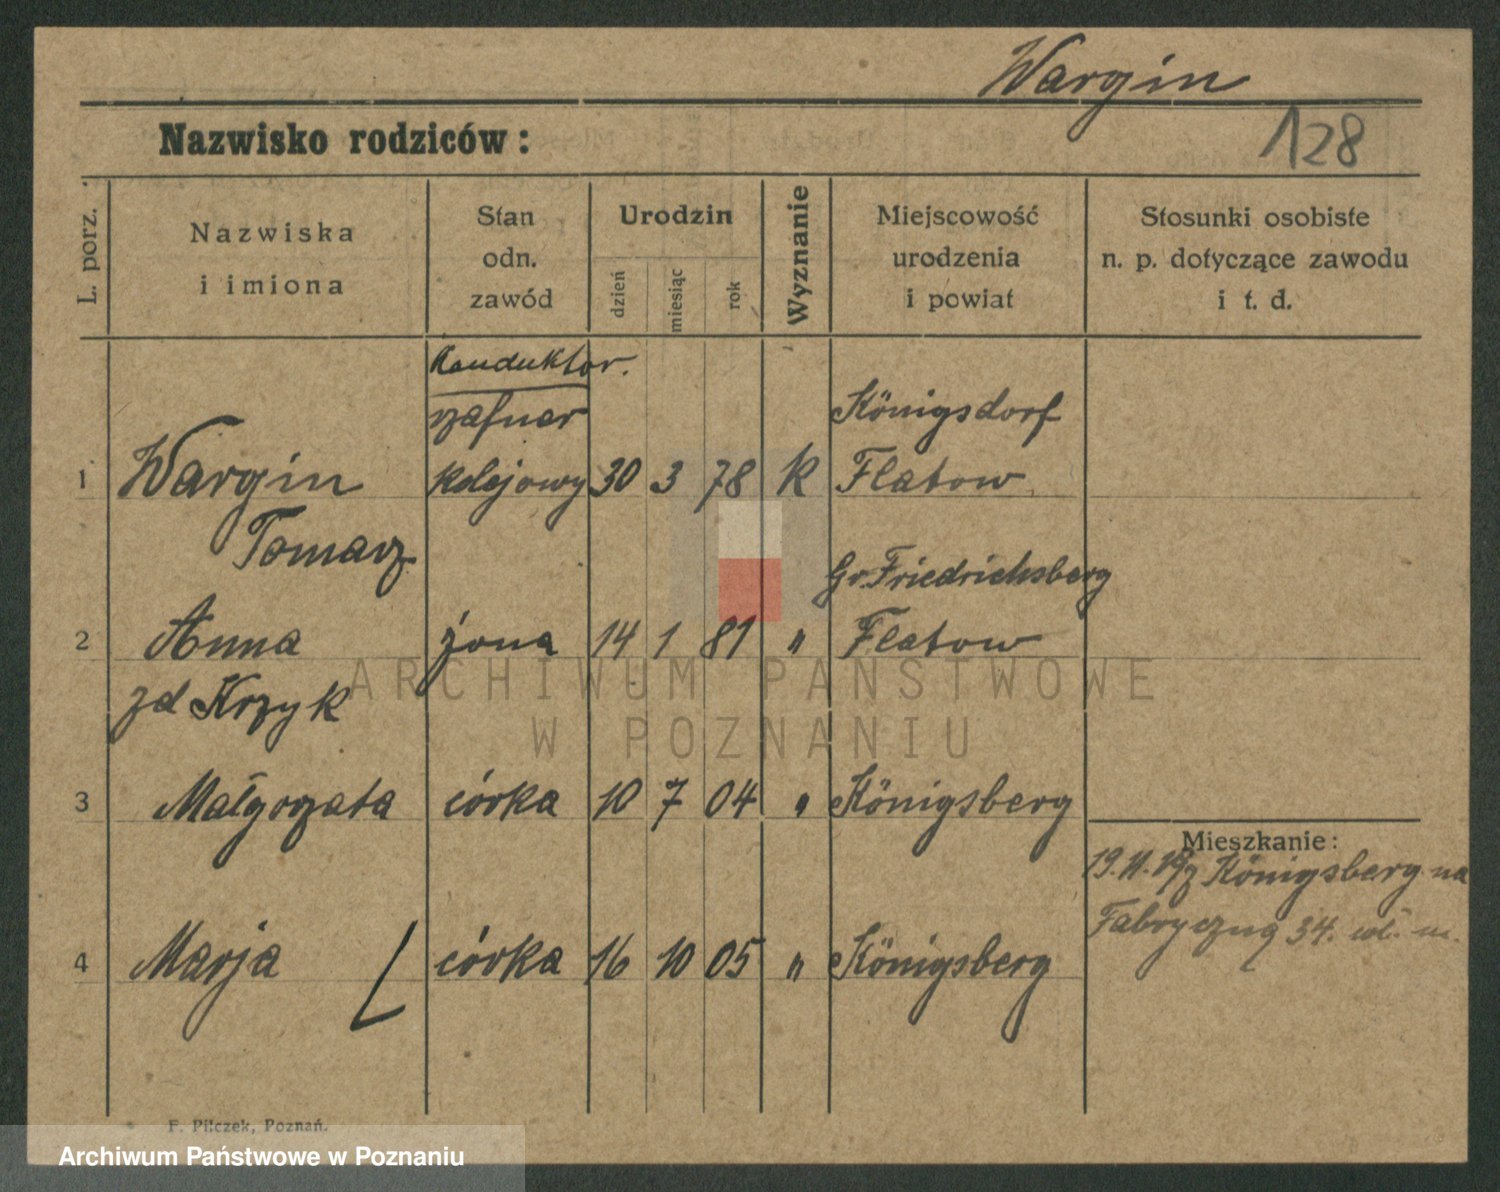 Wargin
Nazwisko rodziców:
128
L. porz.
Nazwiska
i imiona
Stan
odn.
zawód
Urodzin
dzień
miesiąc
rok
Wyznanie
Miejscowość
urodzenia
i powiat
Stosunki osobiste
n. p. dotyczące zawodu
i t. d.
Konduktor.
szafner
Königsdorf
1 Wargin kolejowy 30 3 78 k Flatow
Tomasz
Gr. Friedrichsberg
2 Anna żona 14 1 81 " Flatow
zd Krzyk
3 Małgorzata córka 10 7 04 " Königsberg
Mieszkanie:
19.11.19 z Königsberg na
Fabryczną 34.
4 Marja córka 16 10 05 " Königsberg
F. Pilczek, Poznań.
ARCHIWUM PAŃSTWOWE
W POZNANIU
Archiwum Państwowe w Poznaniu